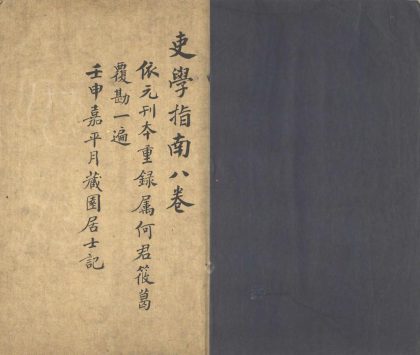 吏學指南八卷
依元刊本重録属何君筱葛
覆勘一遍
壬申嘉平月藏園居士記